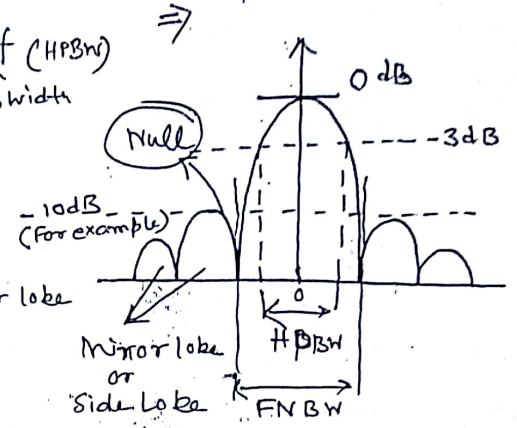 ⇒
f (HPBW)
width
0 dB
Null
-3dB
-10dB
(For example)
r lobe
0
HPBW
Minor lobe
or
Side Lobe
FNBW